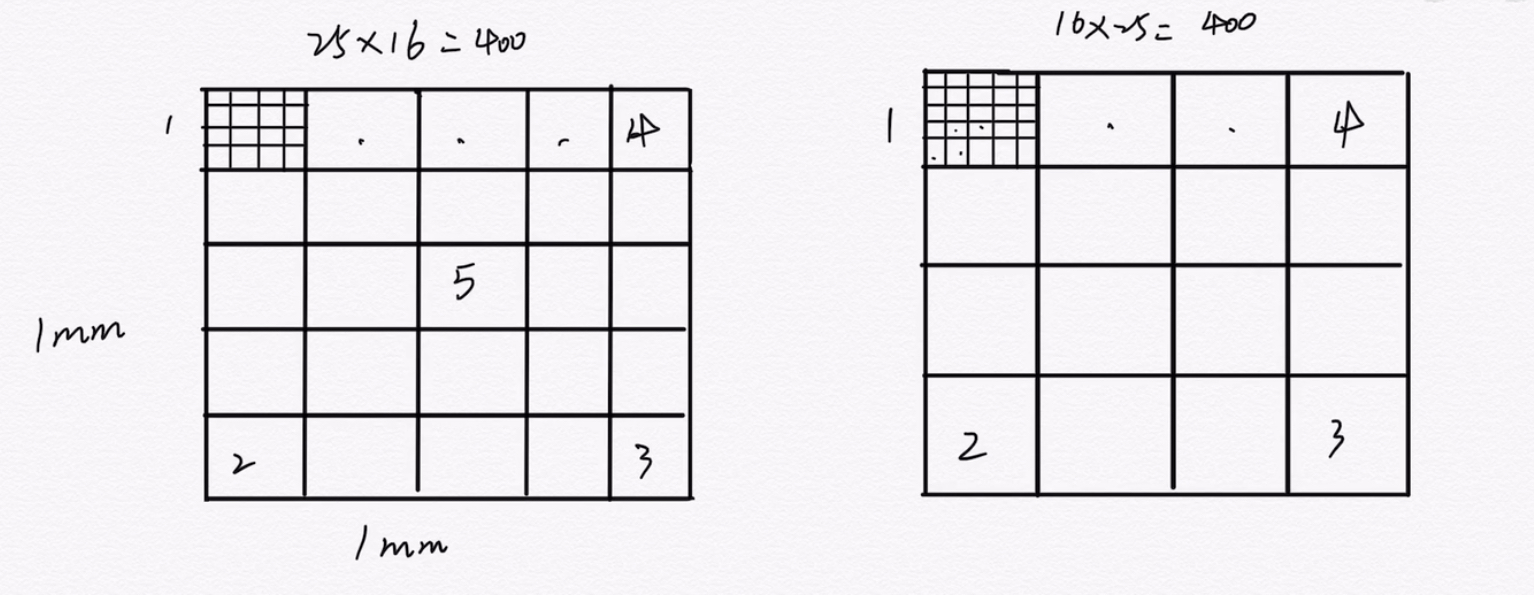 25×16=400
1
4
5
1mm
2
3
1mm
16×25=400
1
4
2
3